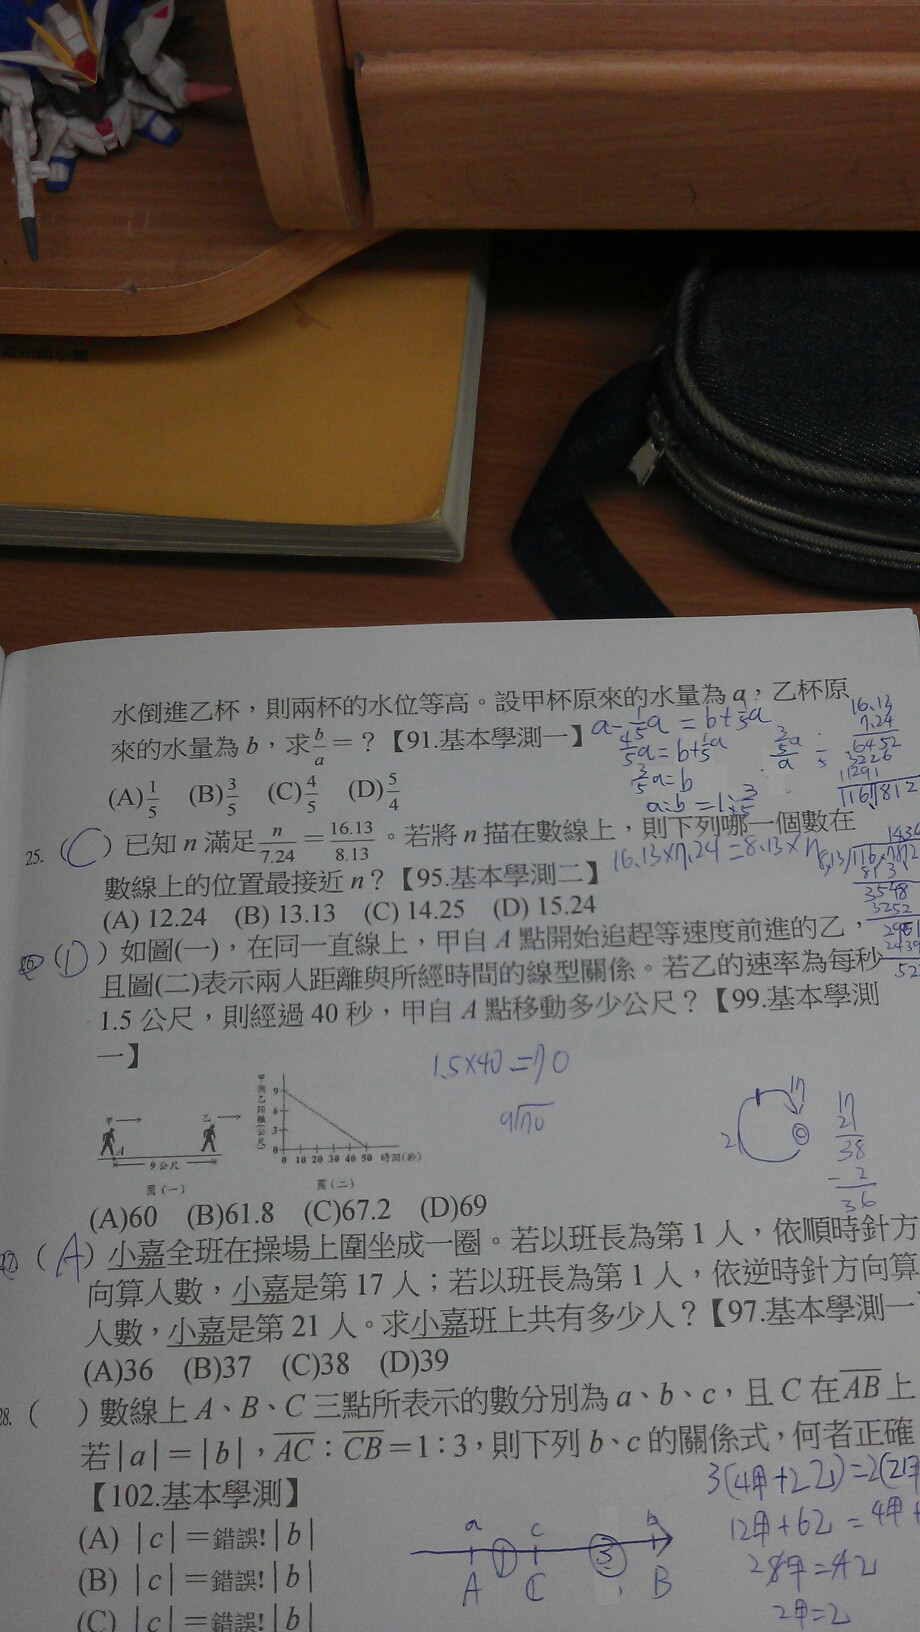 水倒進乙杯，則兩杯的水位等高。設甲杯原來的水量為 a，乙杯原
來的水量為 b，求 b/a = ？【91.基本學測一】
(A) 1/5 (B) 3/5 (C) 4/5 (D) 5/4
a - 1/5a = b + 1/5a
4/5a = b + 1/5a
3/5a = b
16.13
7.24
6452
3226
11291
1167812
25. (C) 已知 n 滿足 n/7.24 = 16.13/8.13 。若將 n 描在數線上，則下列哪一個數在
數線上的位置最接近 n？【95.基本學測二】
16.13×7.24=8.13×n
(A) 12.24 (B) 13.13 (C) 14.25 (D) 15.24
(D) 如圖(一)，在同一直線上，甲自 A 點開始追趕等速度前進的乙，
且圖(二)表示兩人距離與所經時間的線型關係。若乙的速率為每秒
1.5 公尺，則經過 40 秒，甲自 A 點移動多少公尺？【99.基本學測
一】
1.5×40=70
9 70
甲 乙
A
9 公尺
圖(一)
甲與乙距離(公尺)
9
6
3
0
0 10 20 30 40 50 時間(秒)
圖(二)
17
2
17
21
38
-2
36
(A)60 (B)61.8 (C)67.2 (D)69
27. (A) 小嘉全班在操場上圍坐成一圈。若以班長為第 1 人，依順時針方
向算人數，小嘉是第 17 人；若以班長為第 1 人，依逆時針方向算
人數，小嘉是第 21 人。求小嘉班上共有多少人？【97.基本學測一
(A)36 (B)37 (C)38 (D)39
28. ( ) 數線上 A、B、C 三點所表示的數分別為 a、b、c，且 C 在 AB 上
若 |a| = |b|，AC：CB = 1：3，則下列 b、c 的關係式，何者正確
【102.基本學測】
(A) |c| = 錯誤! |b|
(B) |c| = 錯誤! |b|
(C) |c| = 錯誤! |b|
a c b
1 3
A C B
3(4甲+2乙)=2(2甲
12甲+6乙=4甲+
2甲=乙